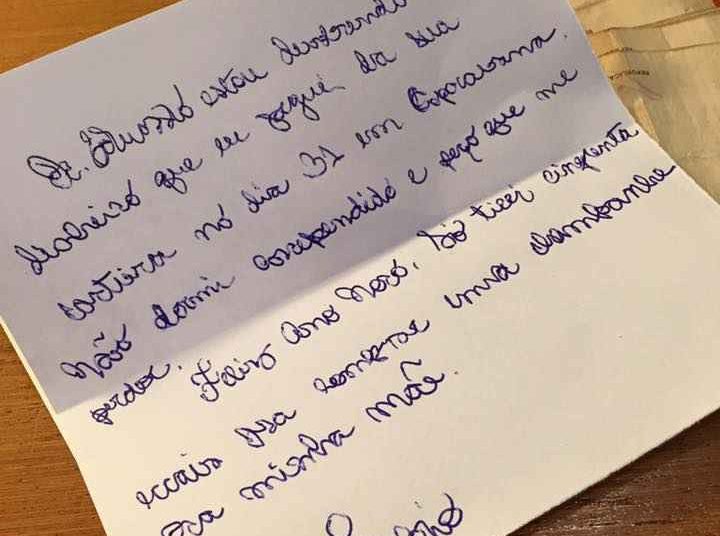 Sr. Eduardo estou devolvendo
dinheiro que eu peguei da sua
carteira no dia 31 em Copacabana.
Não dormi arrependido e peço que me
perdoe. Feliz Ano Novo. Só tirei cinquenta
reais pra comprar uma champanhe
pra minha mãe.